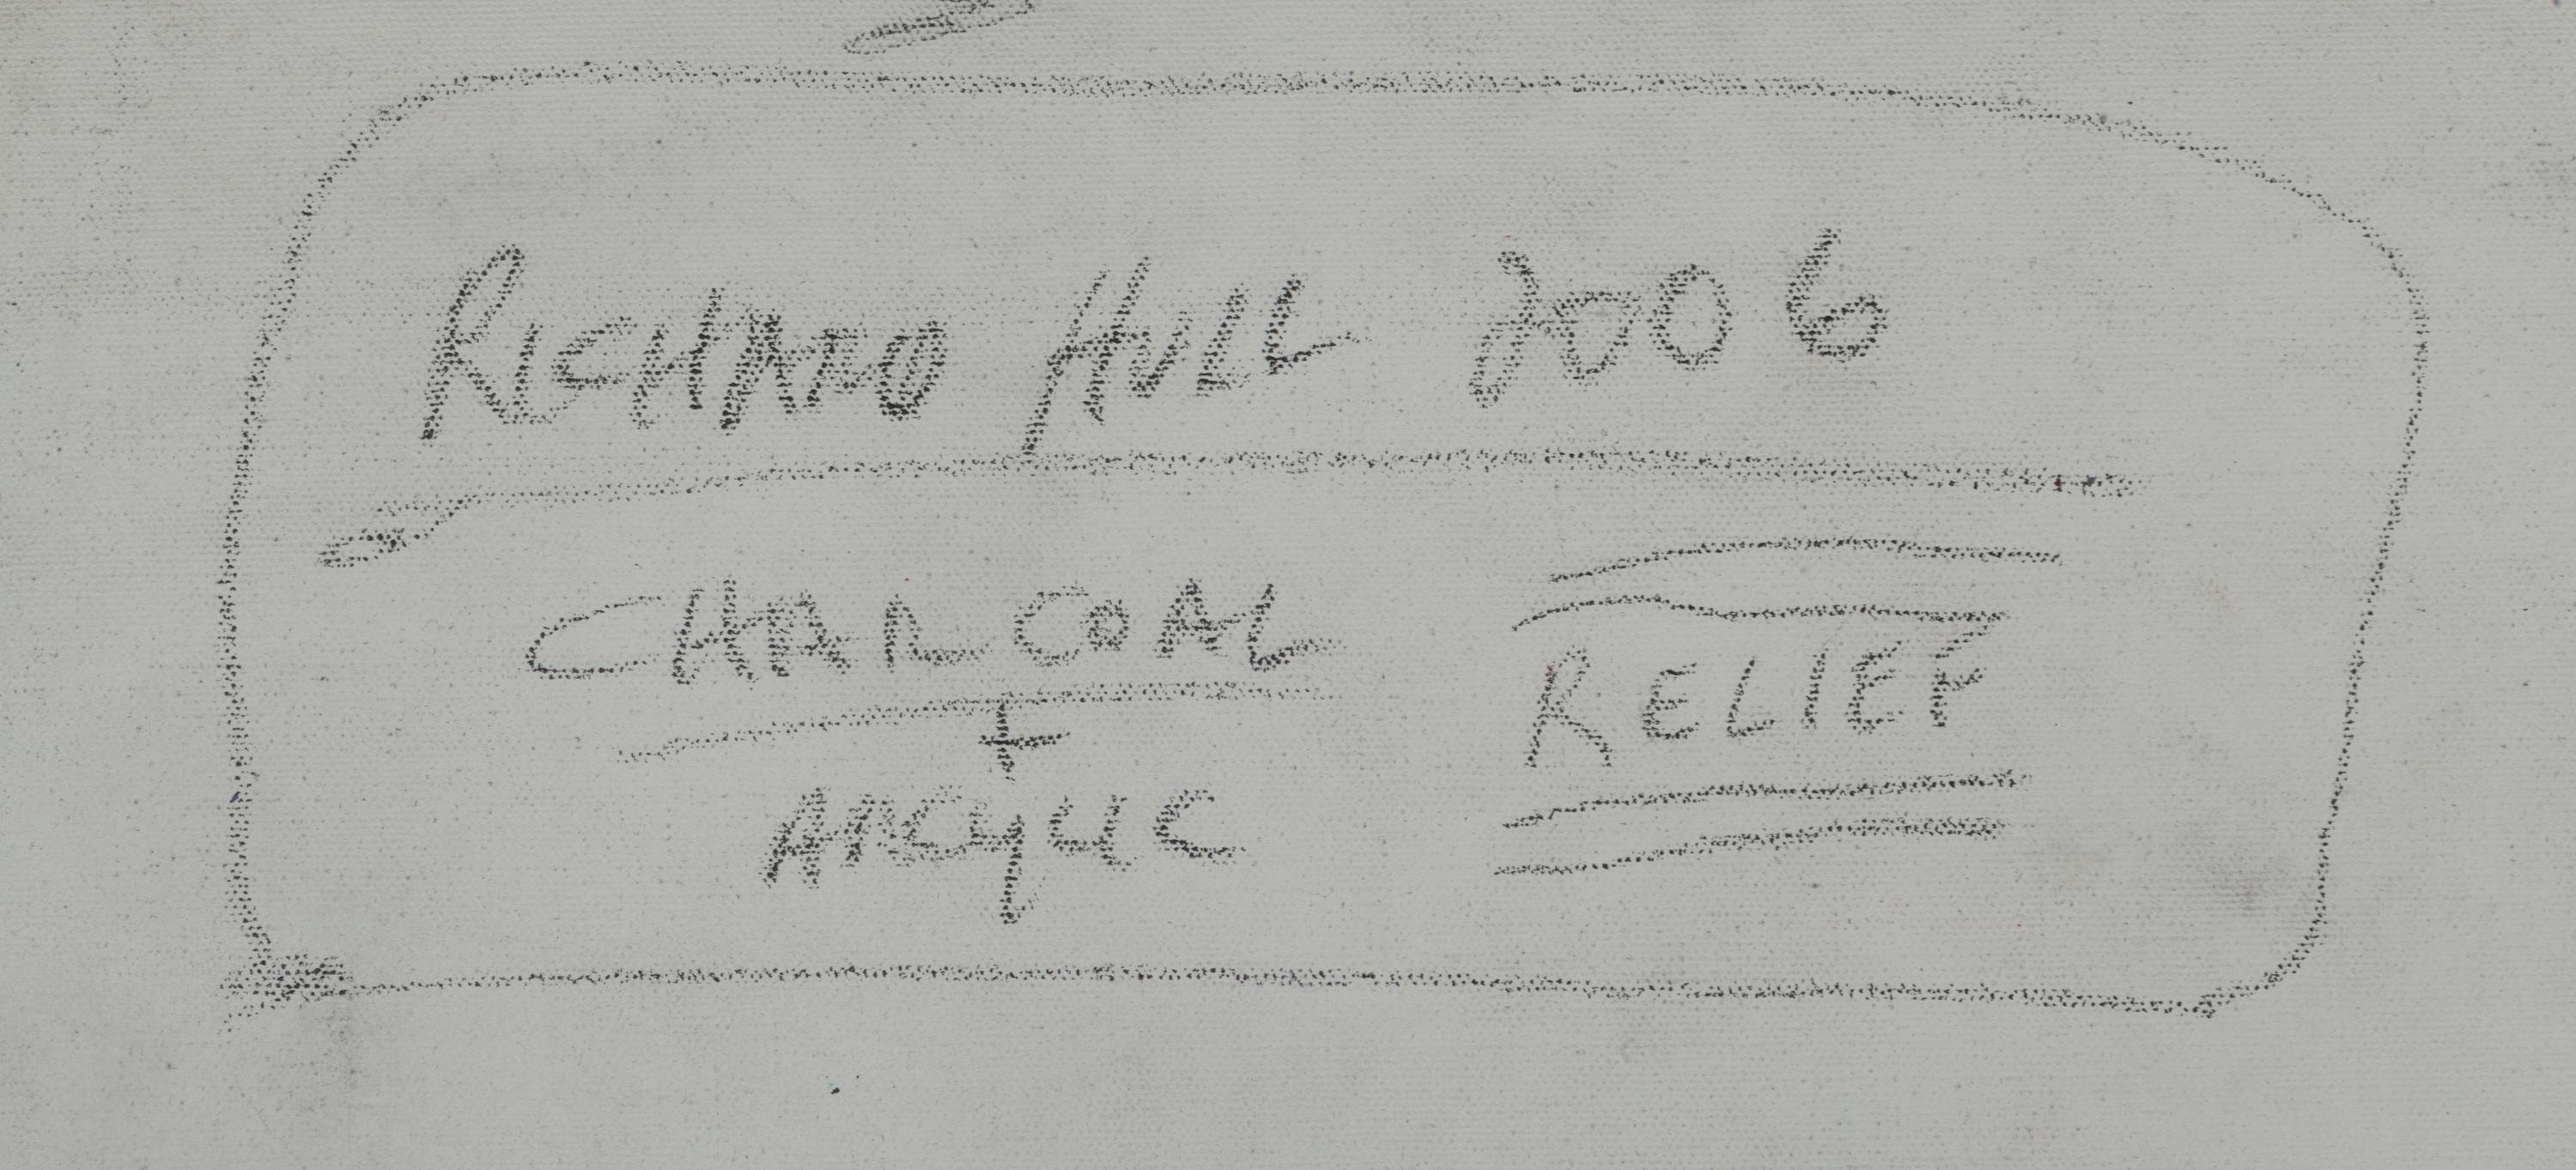 RICHARD HULL 2006
CHARCOAL
RELIEF
+
ARCYLIC